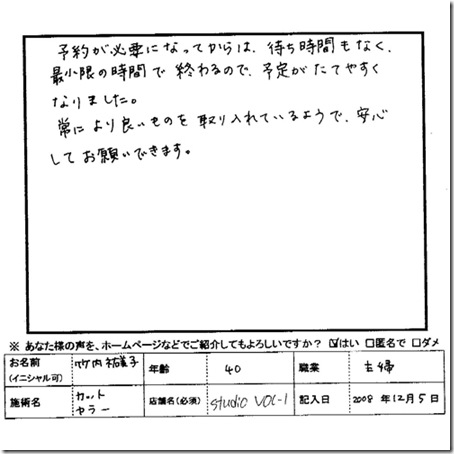 予約が必要になってからは、待ち時間もなく、
最小限の時間で終わるので、予定がたてやすく
なりました。
常により良いものを取り入れているようで、安心
してお願いできます。
※ あなた様の声を、ホームページなどでご紹介してもよろしいですか? ☑はい □匿名で □ダメ
お名前 (イニシャル可) 竹内 祐美子 年齢 40 職業 主婦
施術名 カット カラー 店舗名(必須) studio VOL-1 記入日 2008 年 12 月 5 日